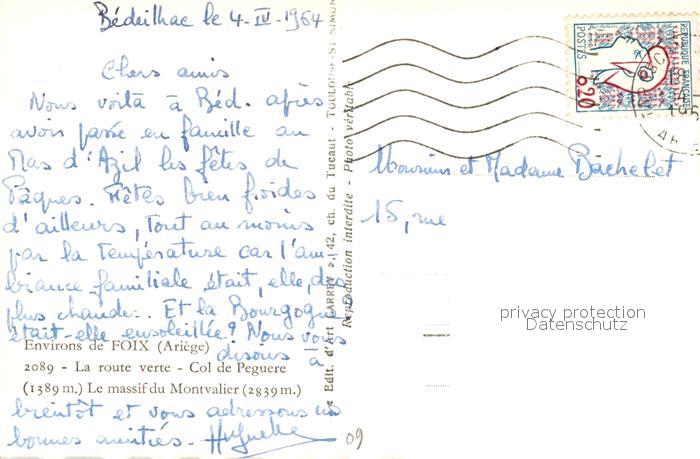 Bédeilhac le 4-IV-1964
Chers amis
Nous voilà à Béd. après
avoir passé en famille au
Mas d'Azil les fêtes de
Pâques. Fêtes bien froides
d'ailleurs, tout au moins
par la température car l'am
biance familiale était, elle, des
plus chande.. Et la Bourgogne
était-elle ensoleillée? Nous vous
disons à
bientôt et vous adressons nos
bonnes amitiés - Huguette
Environs de FOIX (Ariège)
2089 - La route verte - Col de Peguere
(1389 m.) Le massif du Montvalier (2839 m.)
Edit. d'Art "LARREY", 42, ch. du Tucaut - TOULOUSE-ST SIMON
Reproduction interdite - Photo véritable
REPUBLIQUE FRANÇAISE
POSTES
0,20
Monsieur et Madame Bachelet
15, rue
privacy protection
Datenschutz
09